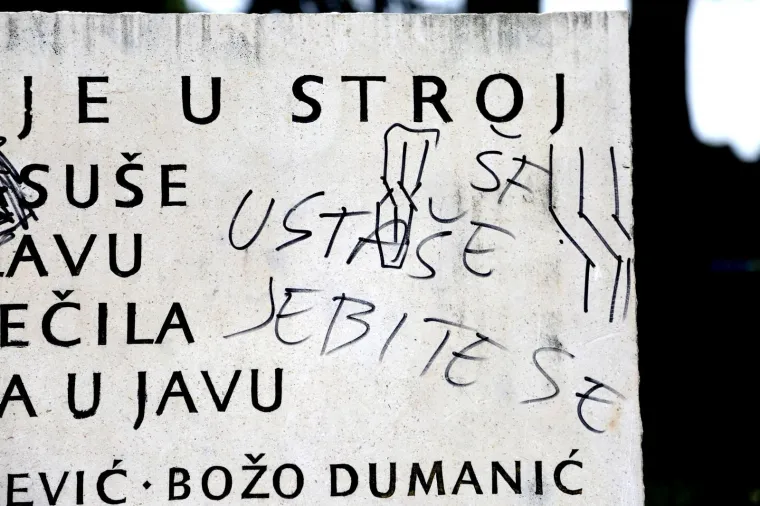 JE U STROJ
SUŠE
ŠA
USTAŠE
AVU
EČILA
JEBITE SE
A U JAVU
EVIĆ · BOŽO DUMANIĆ